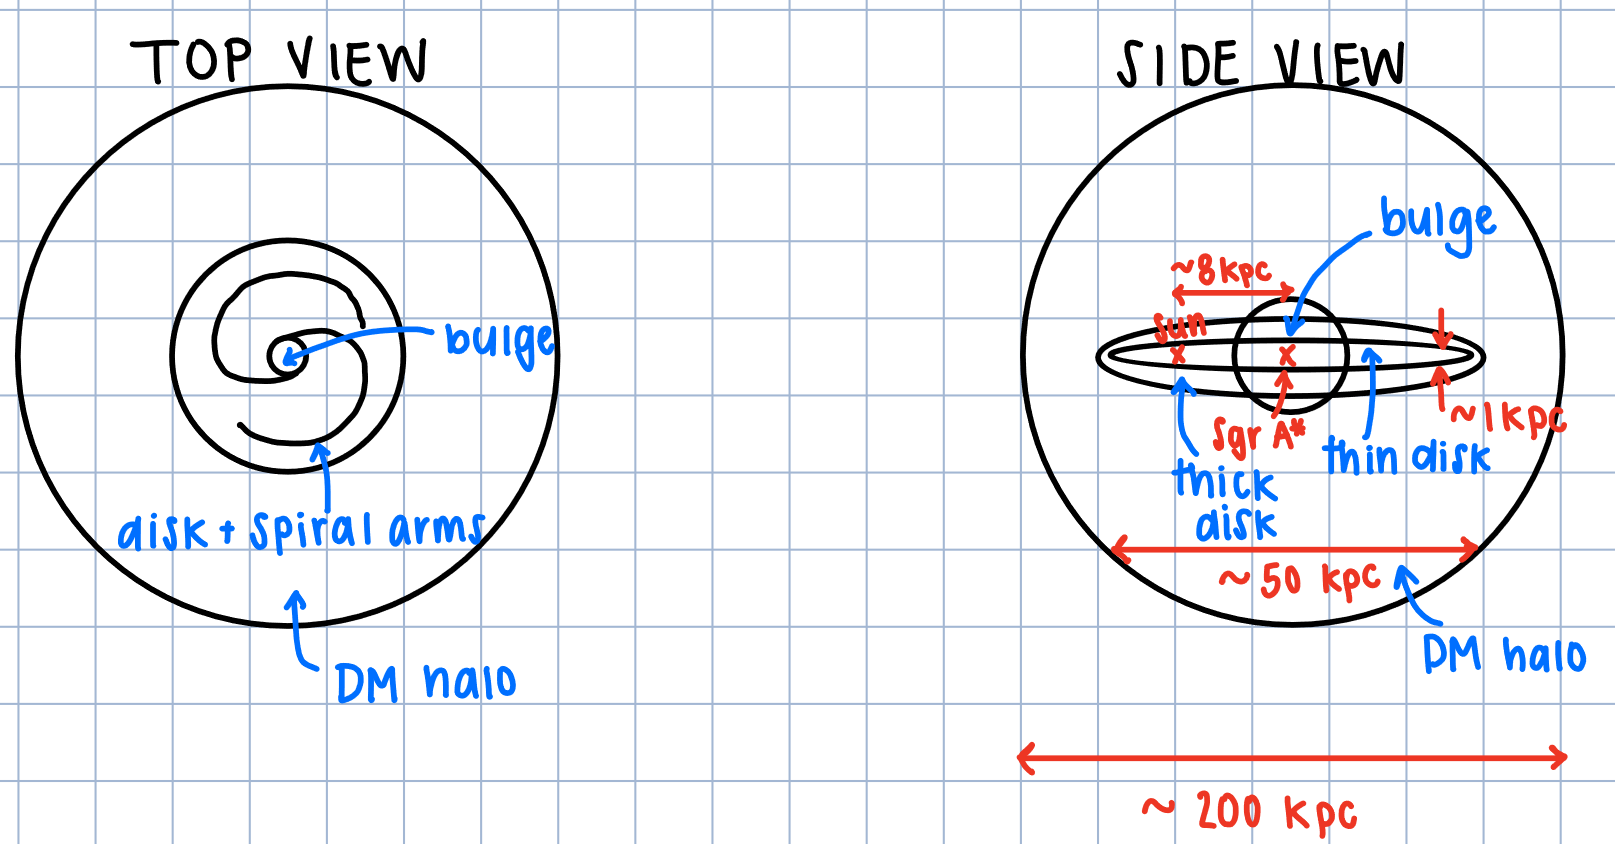 TOP VIEW
bulge
disk + spiral arms
DM halo
SIDE VIEW
bulge
~8kpc
sun
x
x
~1kpc
sgr A*
thin disk
thick
disk
~50 kpc
DM halo
~ 200 kpc